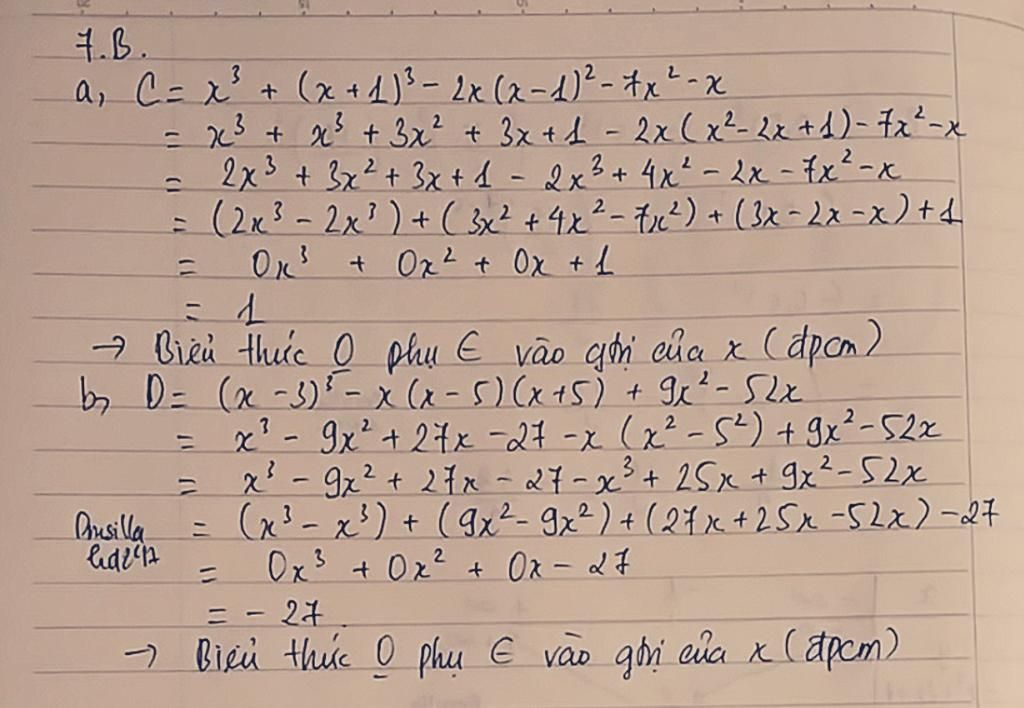 7.B.
a, C = x³ + (x+1)³ - 2x(x-1)² - 7x² - x
= x³ + x³ + 3x² + 3x + 1 - 2x(x² - 2x + 1) - 7x² - x
= 2x³ + 3x² + 3x + 1 - 2x³ + 4x² - 2x - 7x² - x
= (2x³ - 2x³) + (3x² + 4x² - 7x²) + (3x - 2x - x) + 1
= 0x³ + 0x² + 0x + 1
= 1
→ Biểu thức O̲ phụ ∈ vào gtrị của x (đpcm)
b, D = (x - 3)³ - x(x - 5)(x + 5) + 9x² - 52x
= x³ - 9x² + 27x - 27 - x(x² - 5²) + 9x² - 52x
= x³ - 9x² + 27x - 27 - x³ + 25x + 9x² - 52x
= (x³ - x³) + (9x² - 9x²) + (27x + 25x - 52x) - 27
= 0x³ + 0x² + 0x - 27
= - 27.
→ Biểu thức O̲ phụ ∈ vào gtrị của x (đpcm)